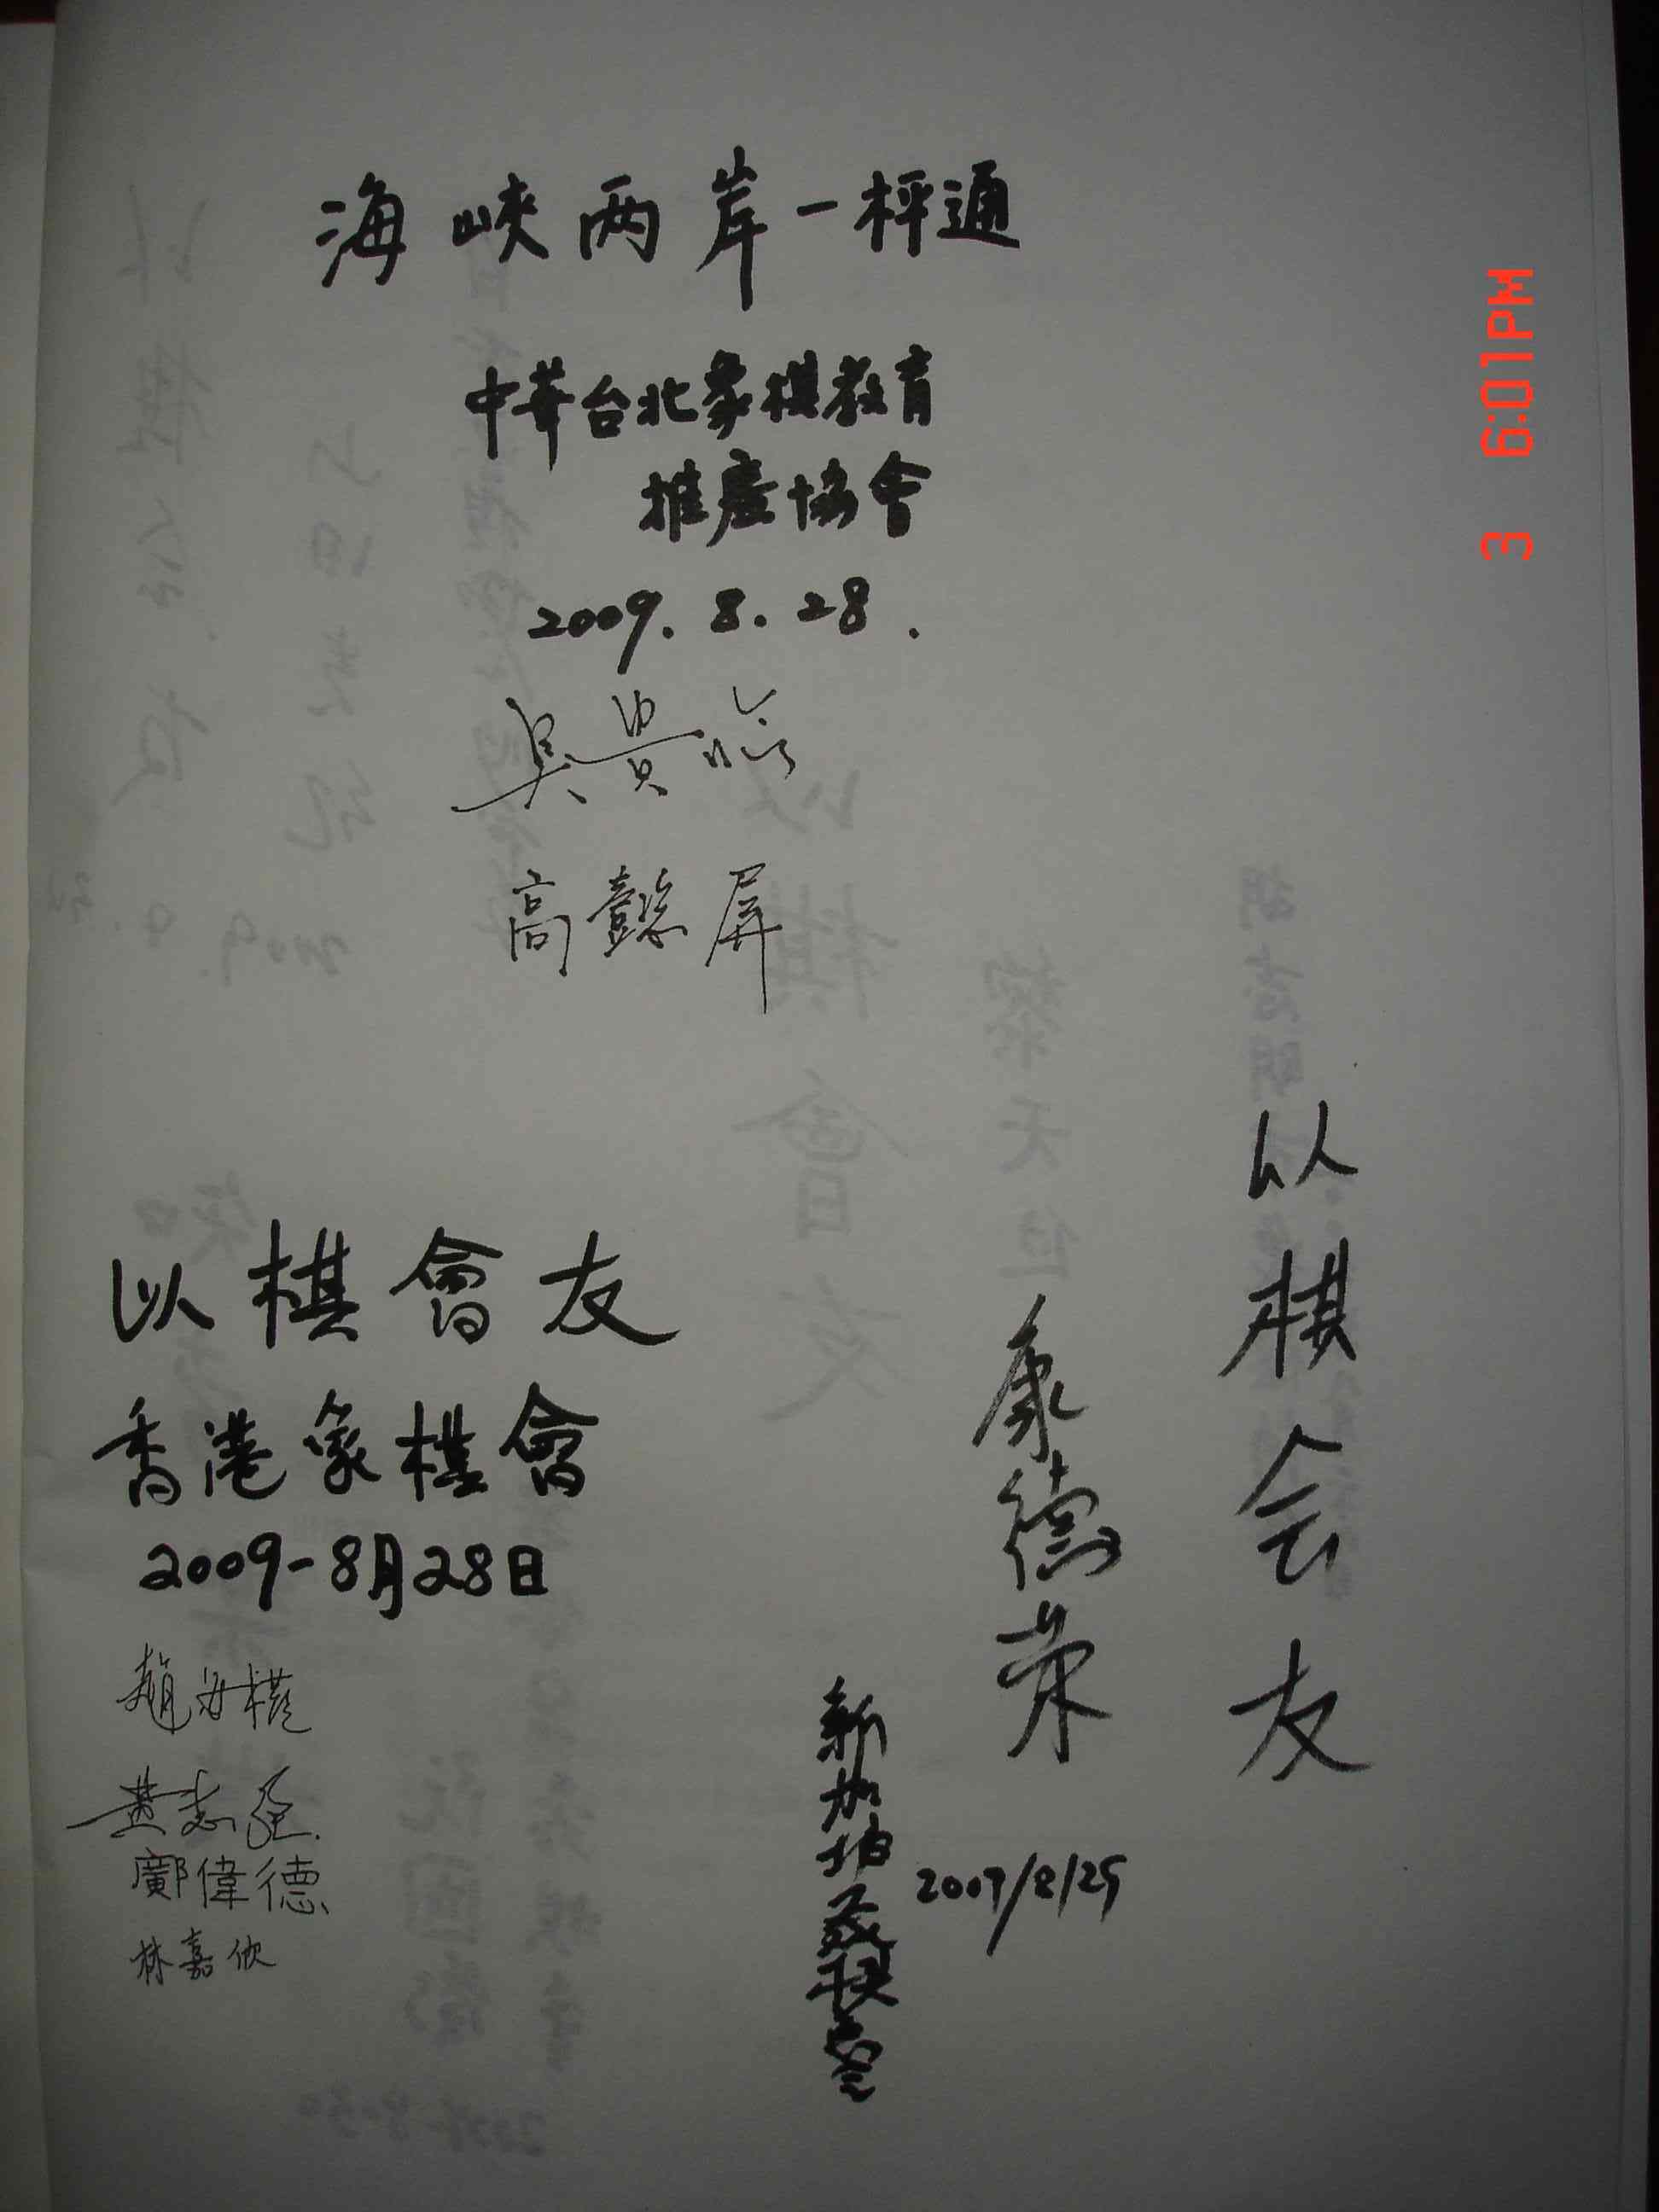 海峽两岸一枰通
中華台北象棋教育
推廣協會
2009.8.28.
吳貴臨
高懿屏
以棋會友
香港象棋會
2009-8月28日
趙汝權
黃志強
鄺偉德
林嘉欣
以棋会友
康德荣
2009/8/29
新加坡
3 6:01PM